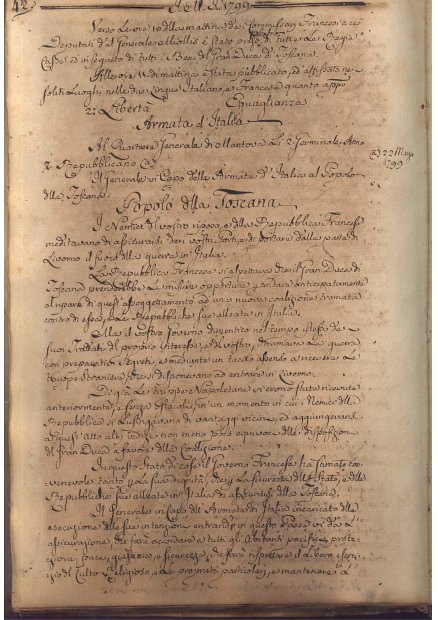 1799
Verso le ore 10 della mattina da i Commissari Francesi a ciò
Deputati dal Generale Miollis è stato preso di tutte le Regie
Casse ed in seguito di tutti i Beni del Gran Duca di Toscana.
Alle ore 11 di mattina è stato pubblicato, ed affisso ne
soliti Luoghi nelle due Lingue Italiana, e Francese quanto appo
Libertà Eguaglianza
Armata d'Italia
Al Quartiere Generale di Mantova li 2 Germinale Anno
7. Repubblicano (a)
(a) 22 Marzo
1799
Il Generale in Capo delle Armate d'Italia al Popolo
della Toscana.
Popolo della Toscana
I Nemici del vostro riposo, e della Repubblica Francese
meditavano di assicurarsi dei vostri Porti, e di portare dalla parte di
Livorno il fuoco della guerra in Italia.
La Repubblica Francese si aspettava che il Gran Duca di
Toscana prenderebbe le misure opportune per andare anticipatamente
al riparo di quest'assoggettamento ad una nuova coalizione tramata
contro di essa, e le Repubbliche sue alleate in Italia.
Ma il vostro Governo dimentico nel tempo istesso de
suoi Trattati, del proprio interesse, e del vostro, chiamava la guerra
con preparativi segreti, e mediante un tacito assenso a ricevere le
truppe straniere, che si disponevano ad entrare in Livorno.
Di già le truppe Napoletane vi erano state ricevute
anteriormente, e senza ostacoli, in un momento in cui i Nemici della
Repubblica si lusingavano di vantaggi vicini, ed aggiungevano
a quest'atto altri indizi non meno poco equivoci della disposizione
del Gran Duca a favore della Coalizione.
In questo stato di cose il Governo Francese ha stimato con
venevole tanto per la sua dignità, che per la sicurezza dello Stato, e delle
Repubbliche sue alleate in Italia di assicurarsi della Toscana.
Il Generale in Capo dell'Armata d'Italia incaricato della
esecuzione delle sue intenzioni entrando in questo Paese vi dà l'
assicurazione, che farà accordare a tutti gli Abitanti pacifici, prote
zione, pace, quiete, e sicurezza, che farà rispettare il libero eserci
zio di Culto Religioso, e le proprietà particolari, e mantenere l'